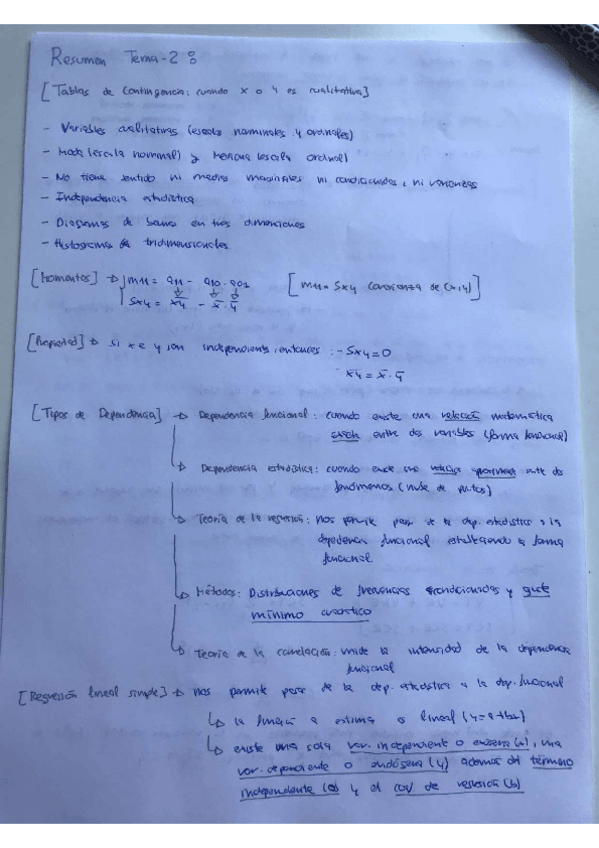 Resumen Tema-2:
[Tablas de Contingencia: cuando x o y es cualitativa]
- Variables cualitativas (escala nominales y ordinales)
- Moda (escala nominal) y Mediana (escala ordinal)
- No tiene sentido ni medias marginales ni condicionadas, ni varianzas
- Independencia estadística
- Diagramas de barras en tres dimensiones
- Histograma de tridimensionales
[Momentos] → m11 = a11 - a10 · a01 [m11 = Sxy Covarianza de (x,y)]
Sxy = xy - x̄ · ȳ
[Propiedad] → Si x e y son independientes, entonces: - Sxy = 0
- xy = x̄ · ȳ
[Tipos de Dependencia] → Dependencia funcional: cuando existe una relación matemática
exacta entre dos variables (forma funcional)
→ Dependencia estadística: cuando existe una relación aproximada entre dos
fenómenos (nube de puntos)
→ Teoría de la regresión: nos permite pasar de la dep. estadística a la
dependencia funcional estableciendo la forma
funcional
→ Métodos: Distribuciones de frecuencias condicionadas y
mínimo cuadrático
→ Teoría de la correlación: mide la intensidad de la dependencia
funcional
[Regresión lineal simple] → nos permite pasar de la dep. estadística a la dep. funcional
→ la función a estimar es lineal (y=a+bx)
→ existe una sola var. independiente o exógena (x), una
var. dependiente o endógena (y) además del término
independiente (a) y el coef de regresión (b)